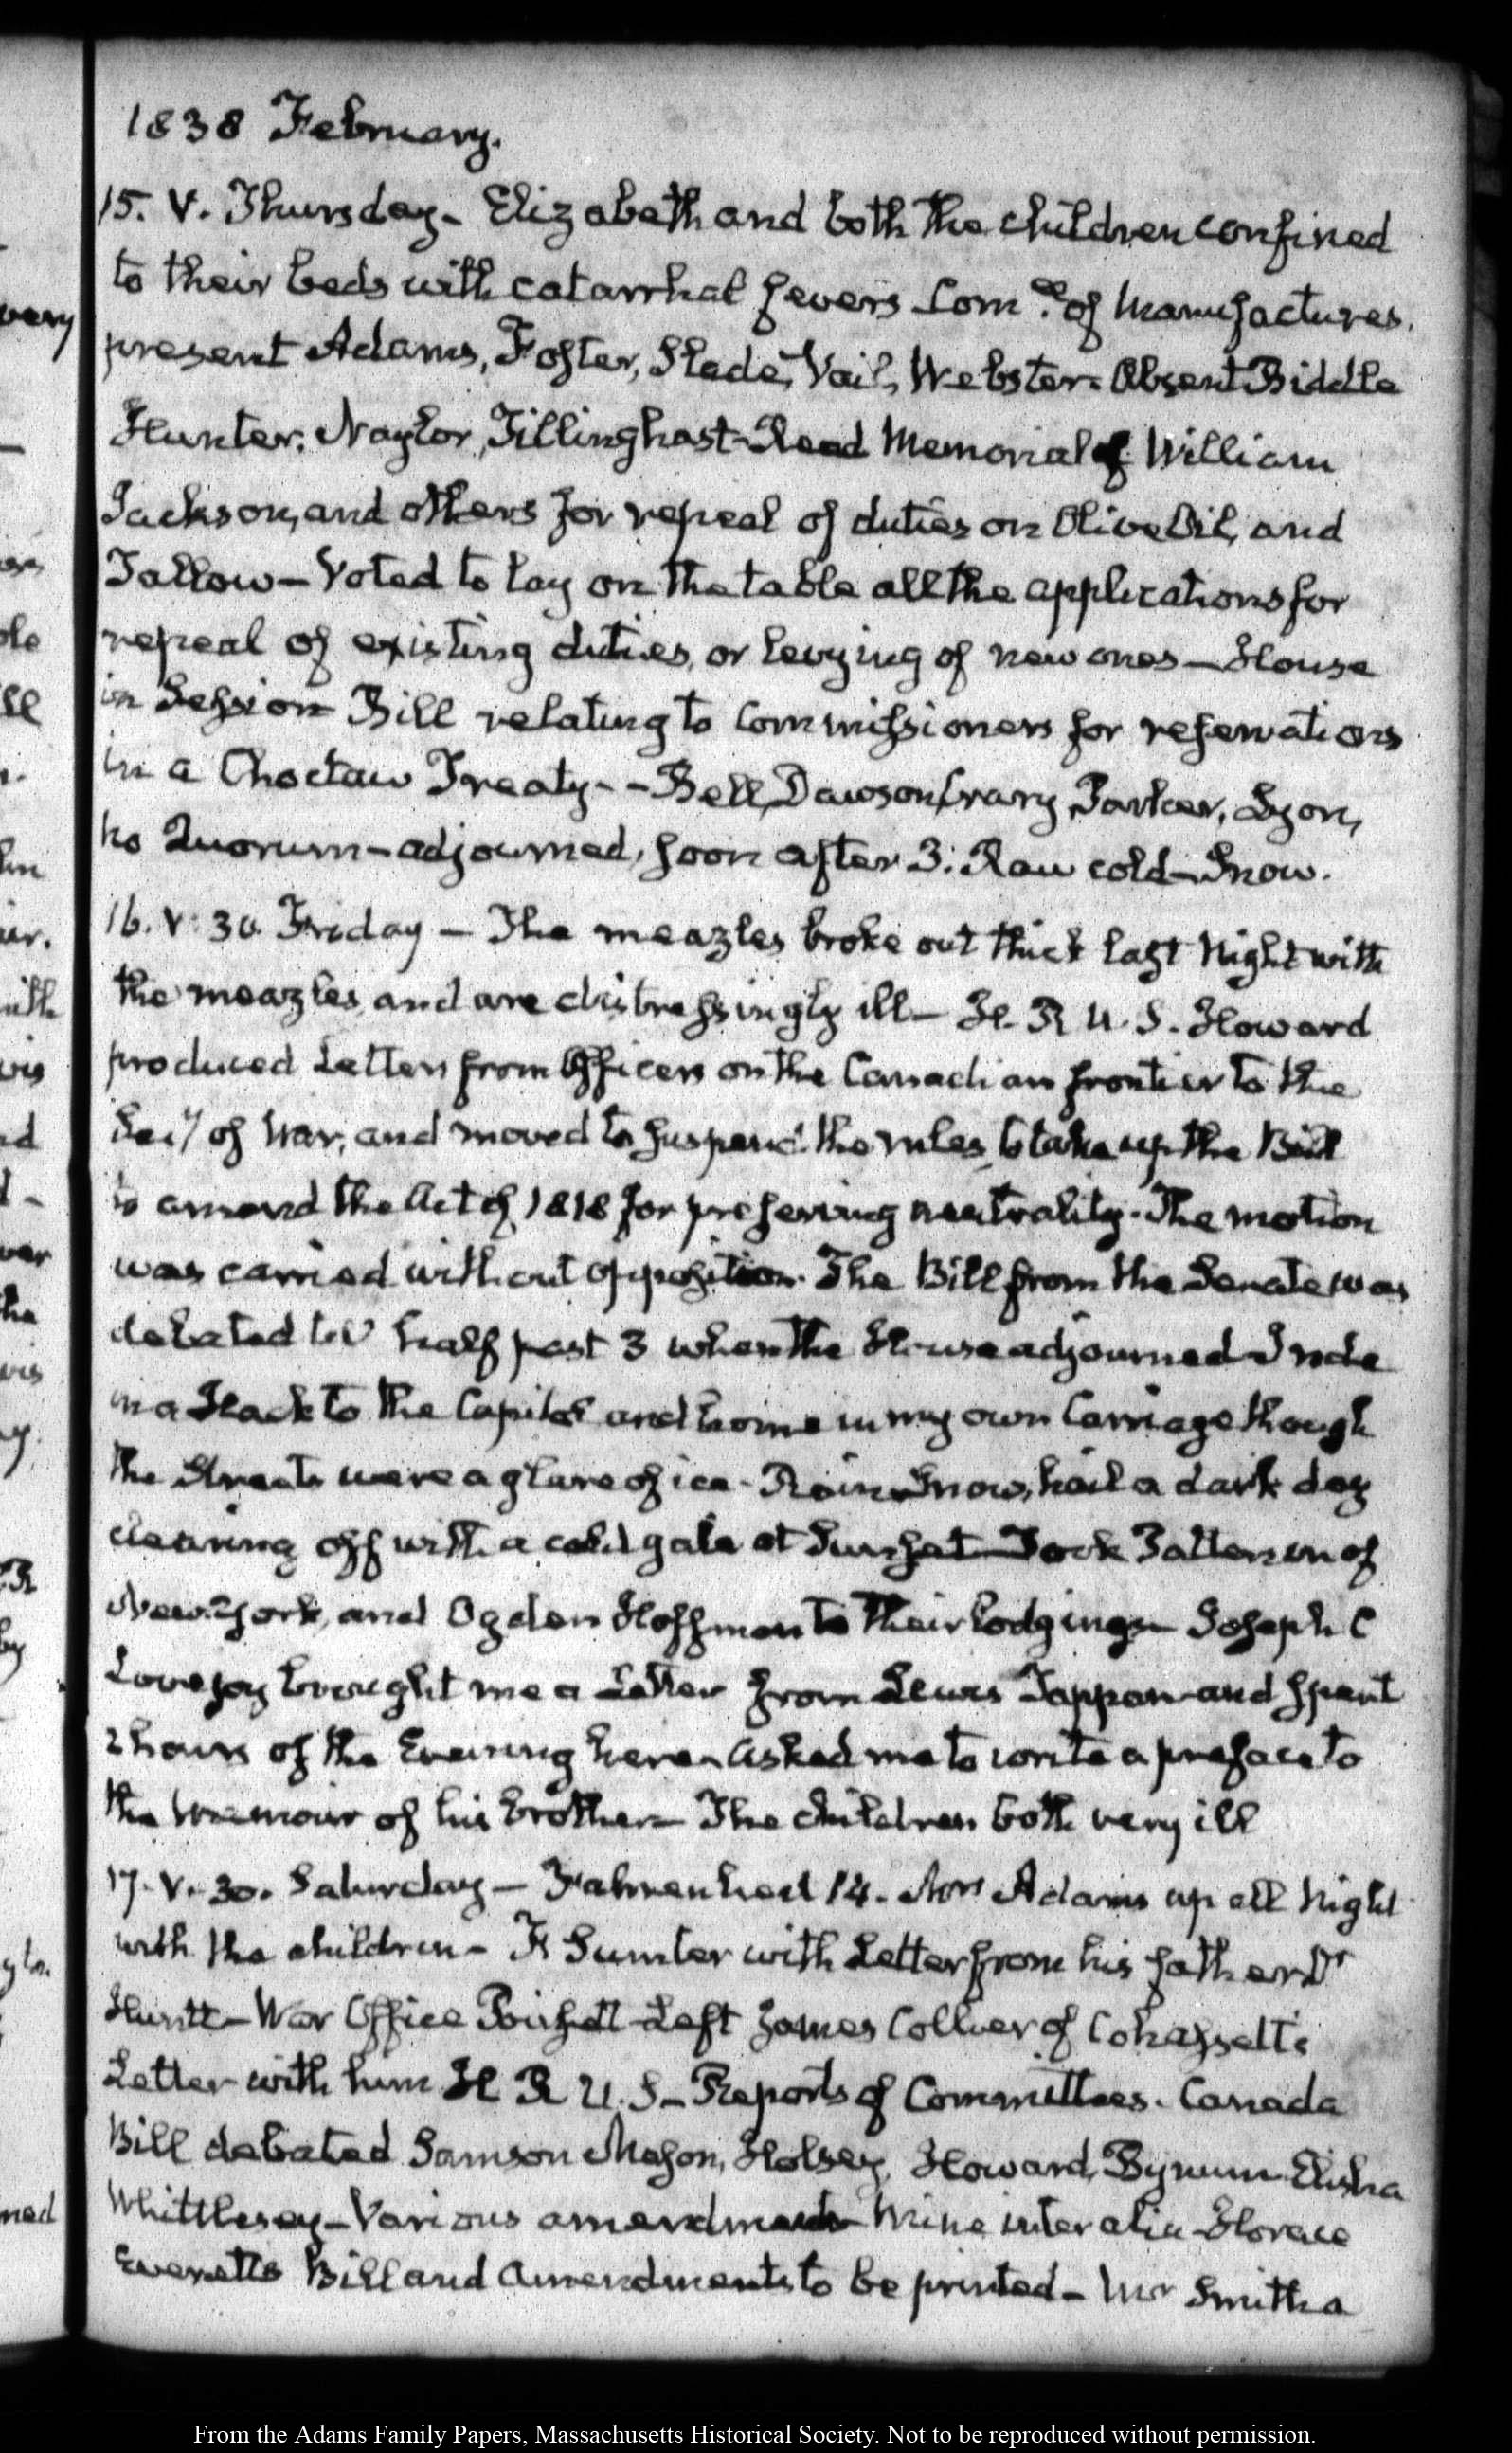 1838 February.
15. V. Thursday– Elizabeth and both the children confined
to their beds with catarrhal fevers Com.ee of Manufactures.
present Adams, Foster, Slade, Vail, Webster. Absent Biddle
Hunter, Naylor, Tillinghast– Read Memorial of William
Jackson, and others for repeal of duties on Olive Oil, and
Tallow– Voted to lay on the table all the applications for
repeal of existing duties, or levying of new ones– House
in Session Bill relating to Commissioners for reservations
in a Choctaw Treaty– – Bell, Dawson, Crary, Parker, Lyon,
no Quorum– adjourned, soon after 3: Raw cold– Snow.
16. V: 30. Friday– The meazles broke out thick last Night with
the meazles, and are distressingly ill– H. R U. S. Howard
produced Letters from Officers on the Canadian frontier to the
Secy of War, and moved to suspend the rules, to take up the Bill
to amend the Act of 1818 for preserving neutrality. The motion
was carried without opposition. The Bill from the Senate was
debated till half past 3 when the House adjourned– I rode
in a Hack to the Capitol and home in my own Carriage though
the Streets were a glare of ice– Rain, Snow, hail a dark day
clearing off with a cold gale at Sunset– Took Patterson of
New-York, and Ogden Hoffman to their lodgings– Joseph C
Lovejoy brought me a Letter from Lewis Tappan and spent
2 hours of the Evening here– Asked me to write a preface to
the Memoir of his brother– The Children both very ill
17. V. 30. Saturday– Fahrenheit 14. Mrs Adams up all Night
with the children– Sumter with Letter from his father Dr
Huntt– War Office Poinsett– Left James Collier of Cohassett's
Letter with him H R U. S– Reports of Committees. Canada
Bill debated Samson Mason, Holsey, Howard, Bynum Elisha
Whittlesey– Various amendments– Mine inter alia– Horace
Everetts Bill and Amendments to be printed– Mr Smith a
very
ple
ill
with
vis
nd
var
the
vis
by
ned
From the Adams Family Papers, Massachusetts Historical Society. Not to be reproduced without permission.